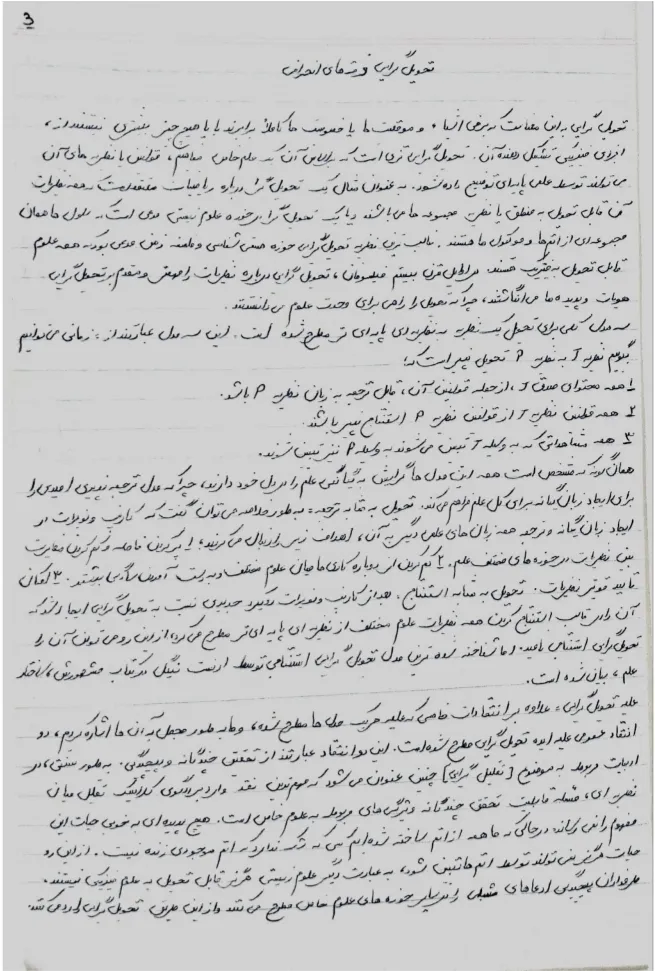 3
تحویل گرایی و رشته های انحراف
تحویل گرایی به این معناست که برخی اشیاء، و موقعیت ها یا خصوصیت ها کاملاً برابرند با یا هیچ چیز بیشتری نیستند از،
اجزای فیزیکی تشکیل دهنده آن. تحویل گرایی تزی است که براساس آن یک علم خاص مفاهیم، قوانین یا نظریه های آن
می توانند توسط علمی پایه ای توضیح داده شود. به عنوان مثال یک تحویل گرا درباره ریاضیات معتقد است که همه نظریات
آن قابل تحویل به منطق یا نظریه مجموعه ها می باشند و یا یک تحویل گرا در حوزه علوم زیستی مدعی است که سلول ها همان
مجموعه ای از اتم ها و مولکول ها هستند. جالب ترین نظریه تحویل گرایی حوزه هستی شناسی و فلسفه ذهن مدعی بود که همه علوم
قابل تحویل به فیزیک هستند. در اوایل قرن بیستم فیلسوفان، تحویل گرایی درباره نظریات را مهمتر و مقدم بر تحویل گرایی
هویات و پدیده ها می انگاشتند، چرا که تحویل را راهی برای وحدت علوم می دانستند.
سه مدل کلی برای تحویل یک نظریه به نظریه ای پایه ای تر مطرح شده است. این سه مدل عبارتند از: زمانی می توانیم
بگوییم نظریه T به نظریه P تحویل پذیر است که:
1 همه محتوای صدق T، از جمله قوانین آن، قابل ترجمه به زبان نظریه P باشد.
2 همه قوانین نظریه T از قوانین نظریه P استنتاج پذیر باشند.
3 همه مشاهداتی که به وسیله T تبیین می شوند به وسیله P نیز تبیین شوند.
همان گونه که مشخص است همه این مدل ها گرایش به یگانگی علم را در دل خود دارند، چرا که مدل ترجمه پذیری امیدی را
برای ایجاد زبان یگانه برای کل علم فراهم می کند. تحویل به مثابه ترجمه: به طور خلاصه می توان گفت که کارنپ و نویرات در
ایجاد زبان یگانه و ترجمه همه زبان های علمی دیگر به آن، اهداف زیر را دنبال می کردند: 1 پر کردن فاصله و کم کردن مغایرت
بین نظریات در حوزه های مختلف علم. 2 کم کردن از دوباره کاری ها میان علوم مختلف و بدست آوردن سادگی بیشتر. 3 امکان
تایید قوی تر نظریات. تحویل به مثابه استنتاج: بعد از کارنپ و نویرات رویکرد جدیدی نسبت به تحویل گرایی ایجاد شد که
آن را در قالب استنتاج کردن همه نظریات علوم مختلف از نظریه ای پایه ای تر مطرح می کرد؛ از این رو می توان آن را
تحویل گرایی استنتاجی نامید. اما شناخته شده ترین مدل تحویل گرایی استنتاجی توسط ارنست نیگل در کتاب مشهورش، ساختار
علم، بیان شده است.
علیه تحویل گرایی: علاوه بر انتقادات خاصی که علیه هر یک مدل ها مطرح شده، و ما به طور مجمل به آن ها اشاره کردیم، دو
انتقاد عمومی علیه ایده تحویل گرایی مطرح شده است. این دو انتقاد عبارتند از تحقق چندگانه و پیچیدگی. به طور سنتی، در
ادبیات مربوط به موضوع [تقلیل گرایی] چنین عنوان می شود که مهم ترین نقد وارد بر الگوی کلاسیک تقلیل میان
نظریه ای، مسئله قابلیت تحقق چندگانه ویژگی های مربوط به علوم خاص است. هیچ پدیده ای به خوبی حیات این
مفهوم را نمی رساند؛ در حالی که ما همه از اتم ساخته شده ایم کسی به شک ندارد که اتم موجودی زنده نیست. از این رو
حیات هرگز نمی تواند توسط اتم ها تبیین شود، به عبارت دیگر علوم زیستی هرگز قابل تحویل به علوم فیزیکی نیستند.
طرفداران پیچیدگی ادعاهای مشابهی را در سایر حوزه های علوم خاص مطرح می کنند و از این طریق تحویل گرایی را رد می کنند.